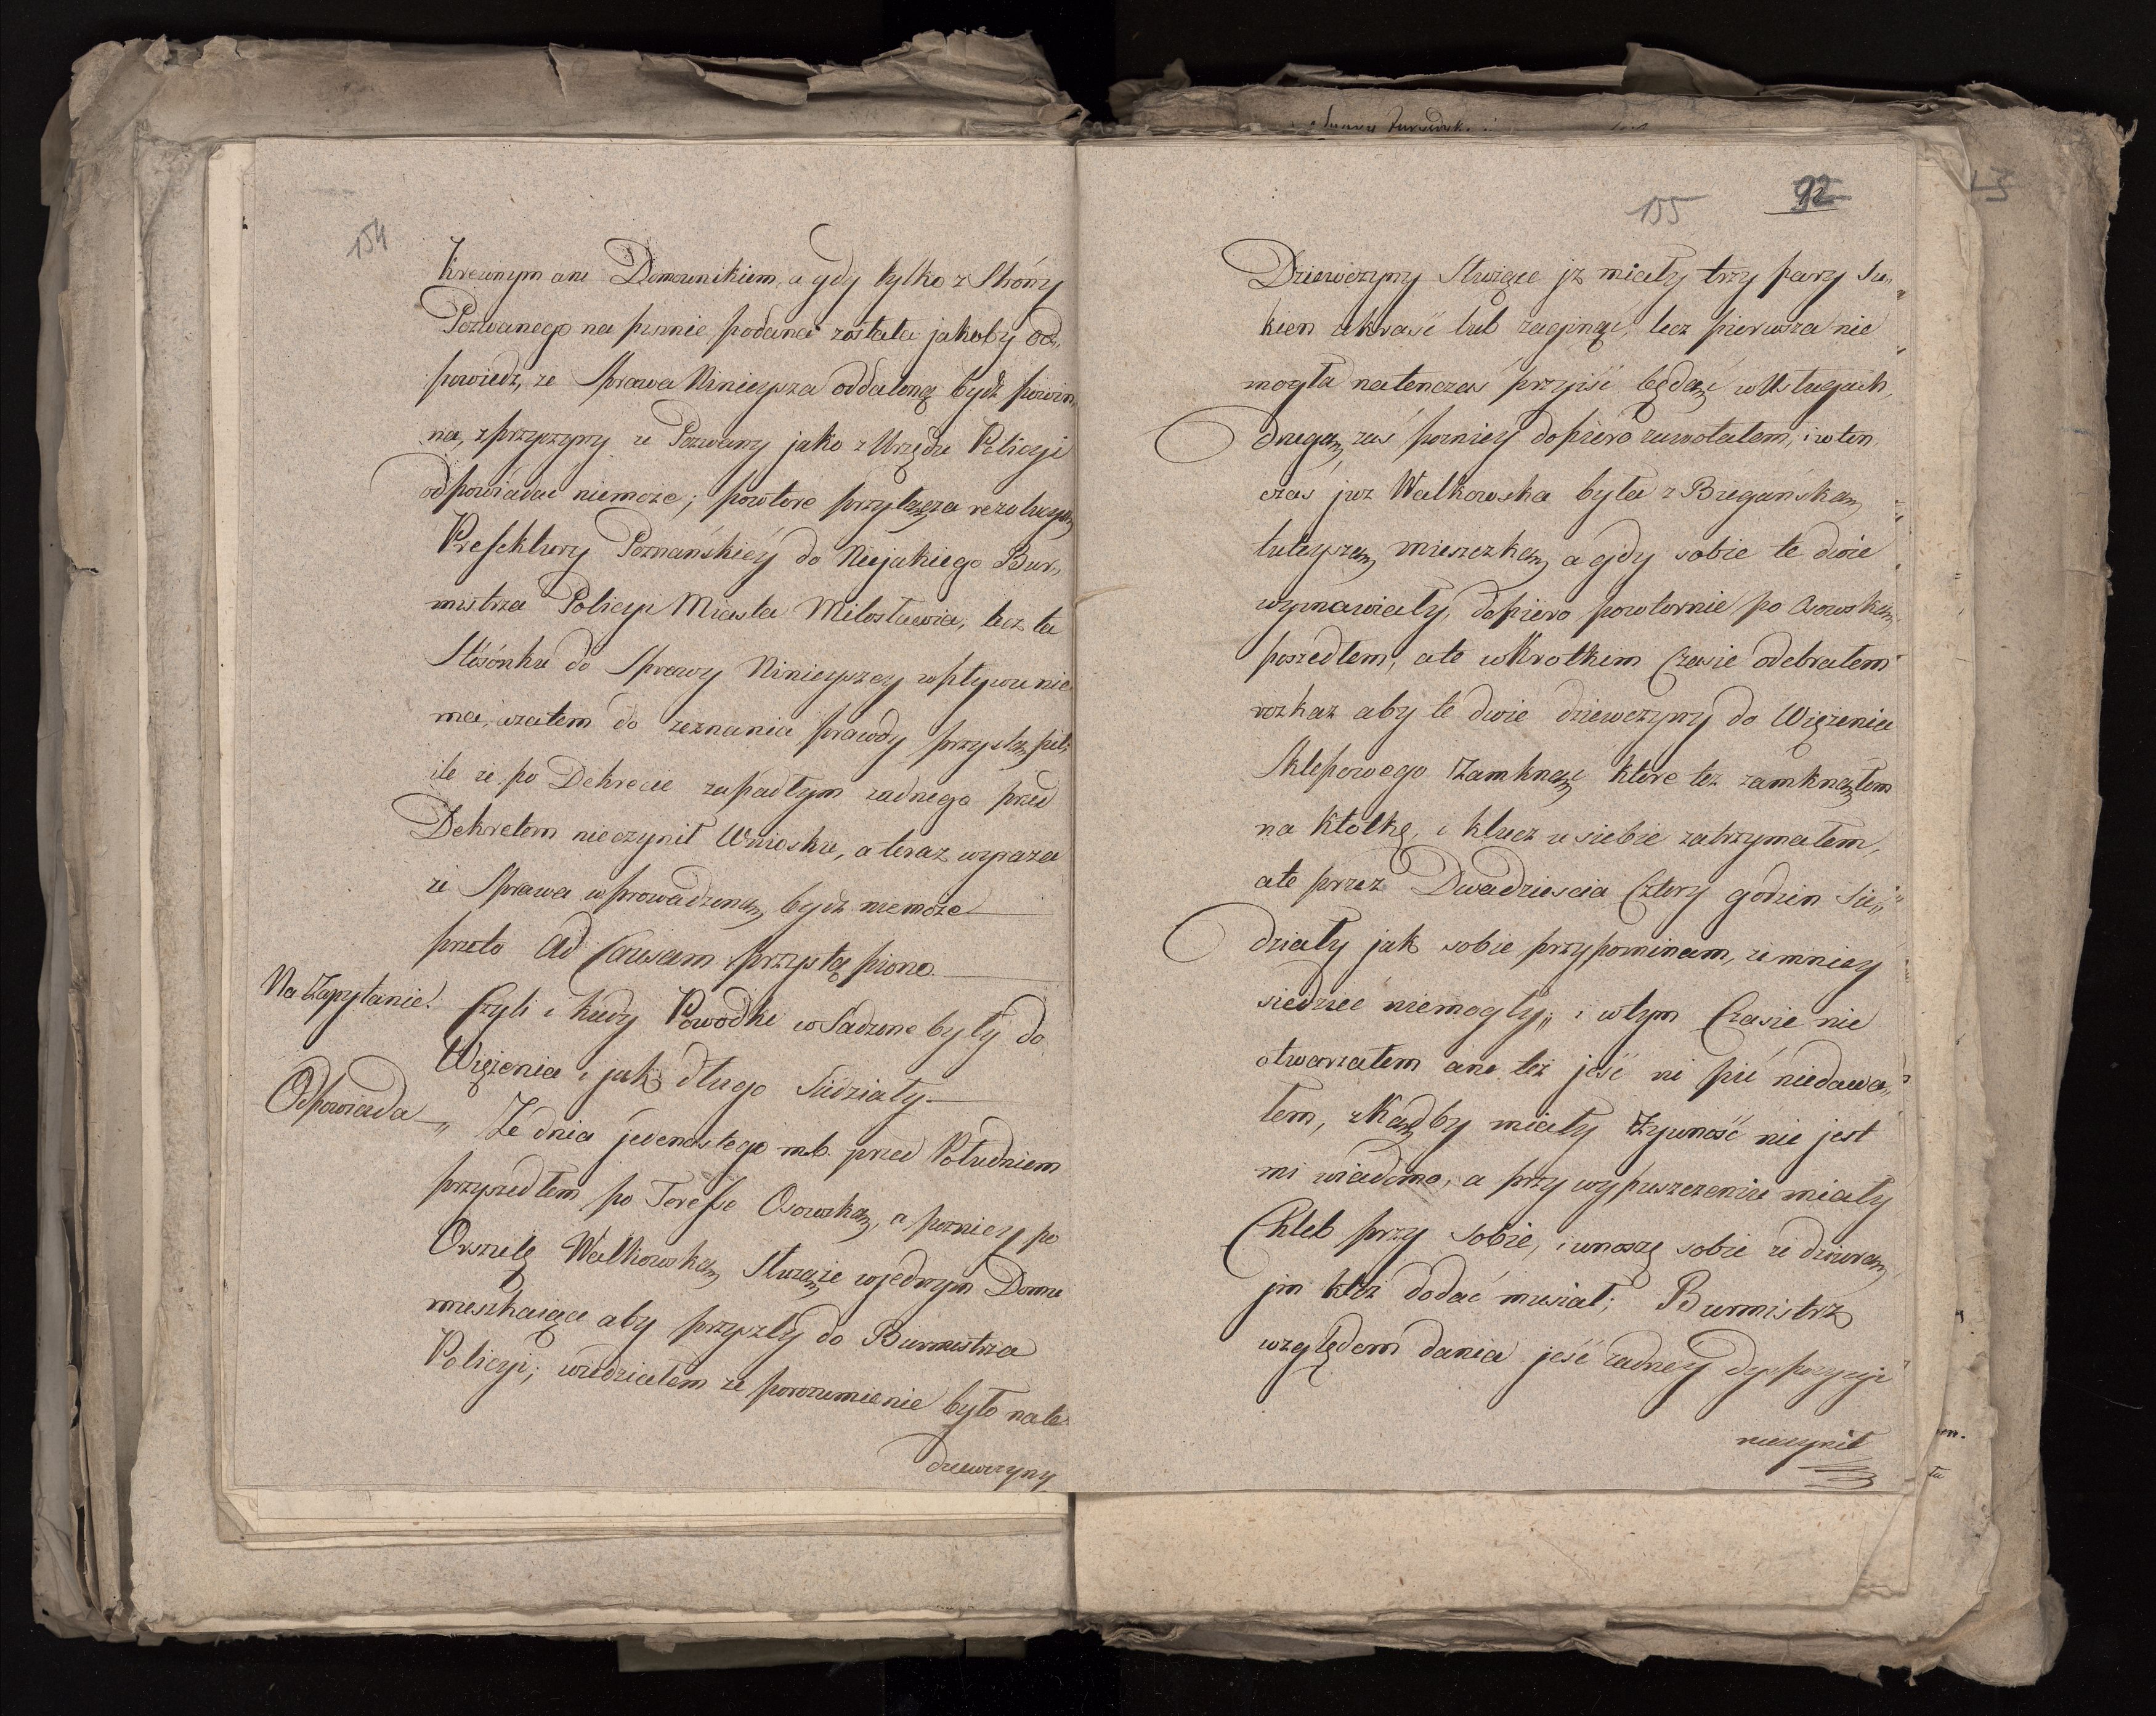 154
Krewnym ani Domownikiem, a gdy tylko z Strony
Pozwanego na pismie podana została jakoby od„
powiedz, ze Sprawa Ninieysza oddaloną bydź powin„
na, z przyczyny ze Pozwany jako z Urzędu Policyi
odpowiadać niemoze; powtore przyłącza rezolucyą
Prefektury Poznańskiéy do Niejakiego Bur„
mistrza Policyi Miasta Miłosławia, lecz ta
Stósónku do Sprawy Ninieyszey wpływu nie
ma, zatem do zeznania prawdy przystąpił;
ile ze po Dekrecie zapadłym zadnego przed
Dekretem nieczynił Wniosku, a teraz wyraza
ze Sprawa wprowadzoną bydz niemoze
przeto Ad Causam przystąpiono.
Na Zapytanie! Czyli i kiedy Powodki wsadzone były do
Więzienia i jak długo Siedziały
Odpowiada „ Ze dnia jedenastego m.b. przed Południem
przyszedłem po Teresse Osowską, a pozniey po
Orszulę Walkowską Stużąie w jednym Domu
mieszkaiące aby przyszły do Burmistrza
Policyi; wiedziałem ze porozumienie było na te
dziewczyny
155
92
Dziewczyny Służące jż miały trzy pary Su„
kien ukraść lub zaginąć, lecz pierwsza nie
mogła natenczas przyiść będąc w Usługach,
drugą zaś pozniey dopiero zawołałem, i w ten
czas juz Walkowska była z Bregańską
tuteyszą mieszczką a gdy sobie te dwie
wymawiały, dopiero powtornie po Osowską
poszedłem, ale w Krotkim Czasie odebrałem
rozkaz aby te dwie dziewczyny do Więzienia
Sklepowego Zamknąć które tez zamknąłem
na Kłotkę, i klucz u siebie zatrzymałem,
ale przez Dwadziescia Cztery godzin Sie„
działy jak sobie przypominam, ze mniey
siedzieć niemogły„ i w tym Czasie nie
otwarzałem ani też jeść ni pić niedawa„
łem, zKądby miały Zywność nie jest
mi wiadomo, a przy wypuszczeniu miały
Chleb przy sobie, i wnoszę sobie ze dziurą
jm ktoś dodać musiał; Burmistrz
względem dania jeść zadney dyspozycyi
nieczynił